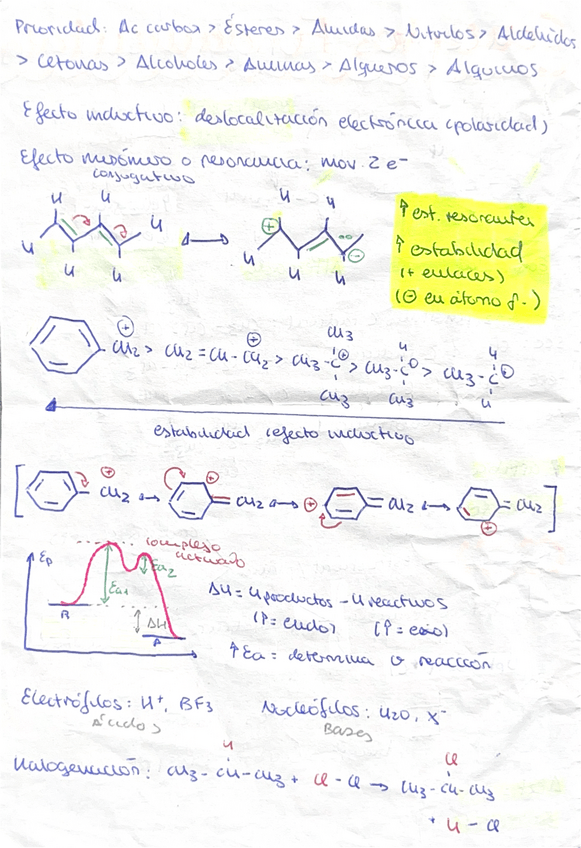 Prioridad: Ac carbox > Ésteres > Amidas > Nitrilos > Aldehídos
> Cetonas > Alcoholes > Aminas > Alquenos > Alquinos
Efecto inductivo: deslocalitación electrónica (polaridad)
Efecto mesómero o resonancia: mov. 2 e⁻
conjugativo
H H H H H H
⊕ H H H H ⊖
↑ est. resonantes
↑ estabilidad
(+ enlaces)
(⊖ en átomo
⊕ CH2 > CH2 = CH - CH2 ⊕ > CH3 - C⊕ CH3 CH3 > CH3 - C H CH3 > CH3 - C H H
estabilidad efecto inductivo
[ ⊕ CH2 ↔ ⊕ = CH2 ↔ ⊕ = CH2 ↔ ⊕ = CH2 ]
complejo
activado
Ep
Ea1 Ea2
R ΔH P
ΔH = H productos - H reactivos
(P = endo) (P = exo)
↑ Ea = determina v reacción
Electrófilos: H⁺, BF3 Nucleófilos: H2O, X⁻
Ácidos Bases
H Cl
Halogenación: CH3 - CH - CH3 + Cl - Cl → CH3 - CH - CH3
+ H - Cl